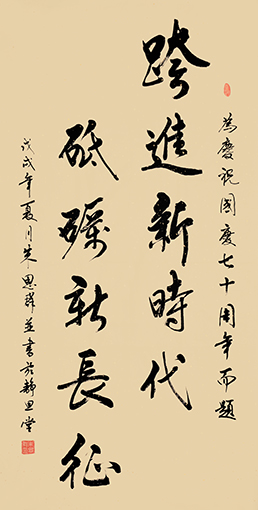 為慶祝國慶七十周年而題
跨進新時代
砥礪新長征
戊戌年夏月朱思瑋並書於靜思堂